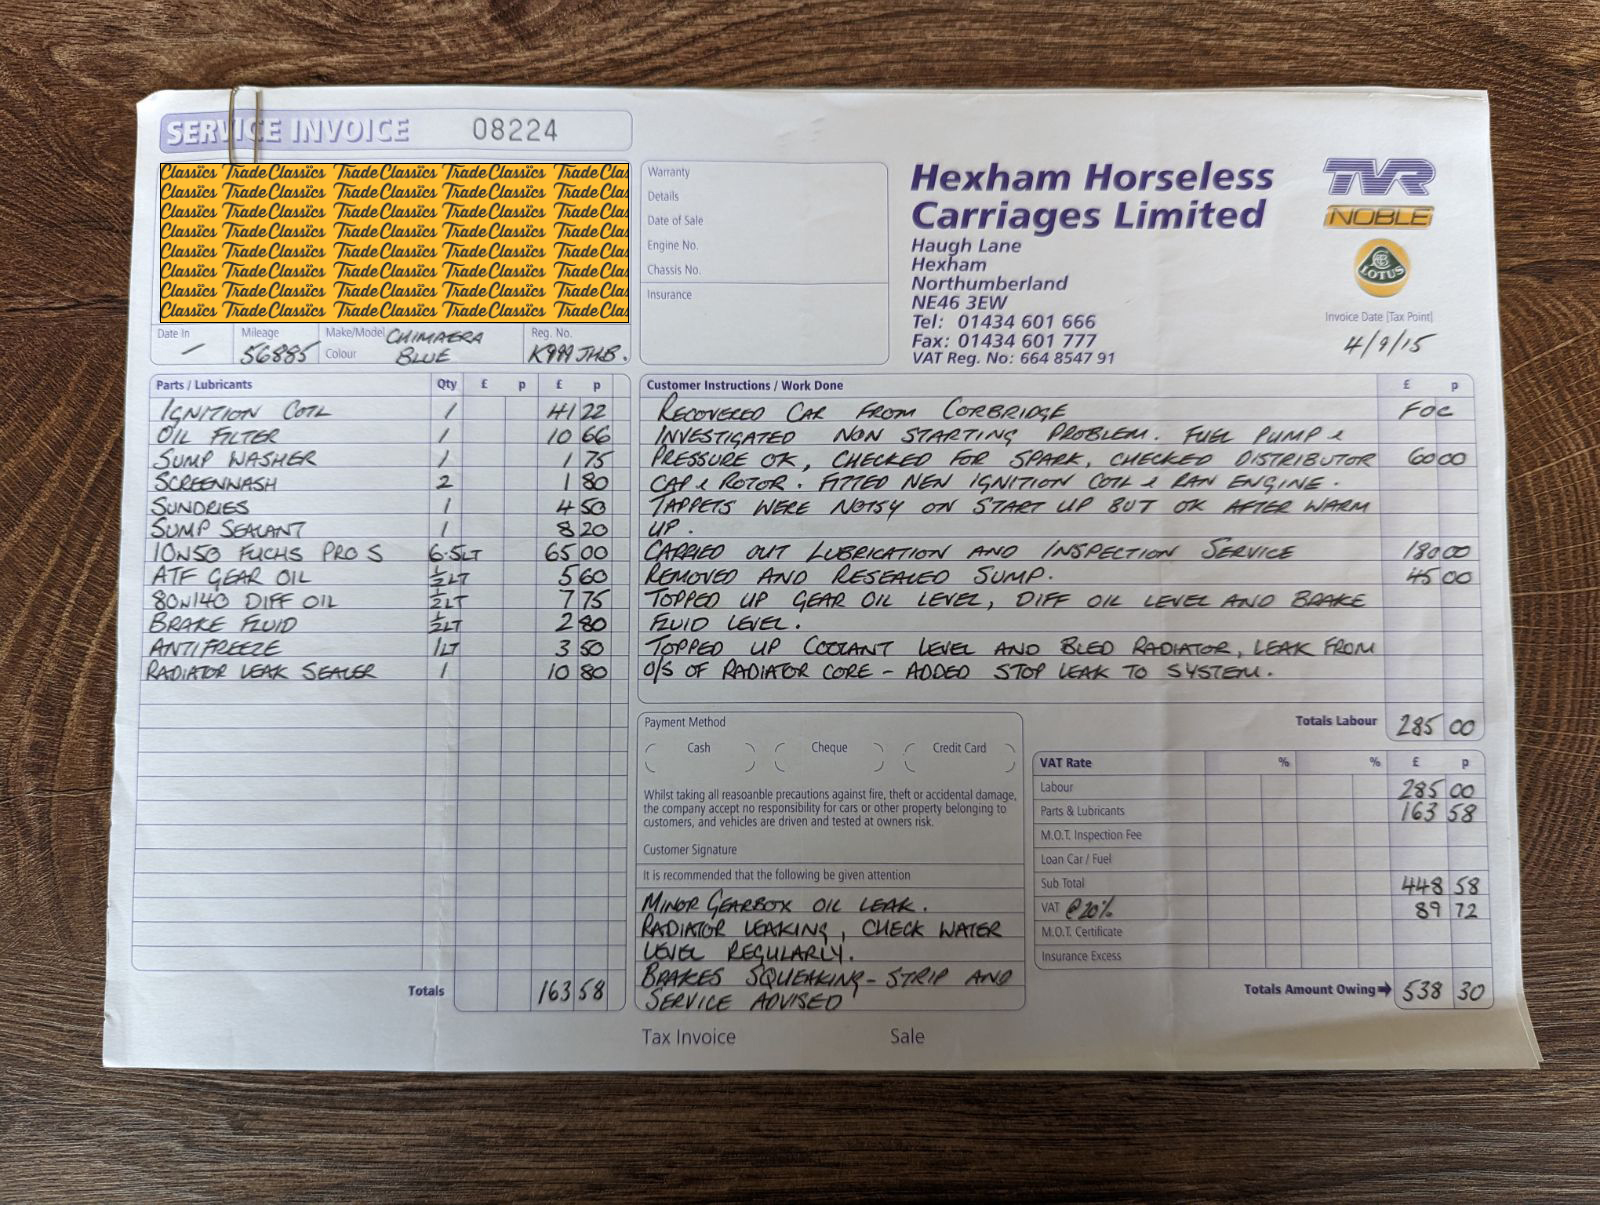 SERVICE INVOICE 08224
Classics TradeClassics TradeClassics TradeClassics TradeClas
Classics TradeClassics TradeClassics TradeClassics TradeClas
Classics TradeClassics TradeClassics TradeClassics TradeClas
Classics TradeClassics TradeClassics TradeClassics TradeClas
Classics TradeClassics TradeClassics TradeClassics TradeClas
Classics TradeClassics TradeClassics TradeClassics TradeClas
Classics TradeClassics TradeClassics TradeClassics TradeClas
Classics TradeClassics TradeClassics TradeClassics TradeClas
Date In Mileage Make/Model CHIMAERA Reg. No.
56885 Colour BLUE K999 JHB.
Warranty
Details
Date of Sale
Engine No.
Chassis No.
Insurance
Hexham Horseless
Carriages Limited
Haugh Lane
Hexham
Northumberland
NE46 3EW
Tel: 01434 601 666
Fax: 01434 601 777
VAT Reg. No: 664 8547 91
TVR
NOBLE
LOTUS
Invoice Date (Tax Point)
4/9/15
Parts / Lubricants Qty £ p £ p
IGNITION COIL 1 41 22
OIL FILTER 1 10 66
SUMP WASHER 1 1 75
SCREENWASH 2 1 80
SUNDRIES 1 4 50
SUMP SEALANT 1 8 20
10W50 FUCHS PRO S 6.5LT 65 00
ATF GEAR OIL ½LT 5 60
80W140 DIFF OIL ½LT 7 75
BRAKE FLUID ½LT 2 80
ANTIFREEZE 1LT 3 50
RADIATOR LEAK SEALER 1 10 80
Totals 163 58
Customer Instructions / Work Done £ p
RECOVERED CAR FROM CORBRIDGE FOC
INVESTIGATED NON STARTING PROBLEM. FUEL PUMP &
PRESSURE OK, CHECKED FOR SPARK, CHECKED DISTRIBUTOR 60 00
CAP & ROTOR. FITTED NEW IGNITION COIL & RAN ENGINE.
TAPPETS WERE NOISY ON START UP BUT OK AFTER WARM
UP.
CARRIED OUT LUBRICATION AND INSPECTION SERVICE 180 00
REMOVED AND RESEALED SUMP. 45 00
TOPPED UP GEAR OIL LEVEL, DIFF OIL LEVEL AND BRAKE
FLUID LEVEL.
TOPPED UP COOLANT LEVEL AND BLED RADIATOR, LEAK FROM
O/S OF RADIATOR CORE - ADDED STOP LEAK TO SYSTEM.
Totals Labour 285 00
Payment Method
Cash Cheque Credit Card
Whilst taking all reasoanble precautions against fire, theft or accidental damage,
the company accept no responsibility for cars or other property belonging to
customers, and vehicles are driven and tested at owners risk.
Customer Signature
It is recommended that the following be given attention
MINOR GEARBOX OIL LEAK.
RADIATOR LEAKING, CHECK WATER
LEVEL REGULARLY.
BRAKES SQUEAKING - STRIP AND
SERVICE ADVISED
VAT Rate % % £ p
Labour 285 00
Parts & Lubricants 163 58
M.O.T. Inspection Fee
Loan Car / Fuel
Sub Total 448 58
VAT @20% 89 72
M.O.T. Certificate
Insurance Excess
Totals Amount Owing 538 30
Tax Invoice Sale